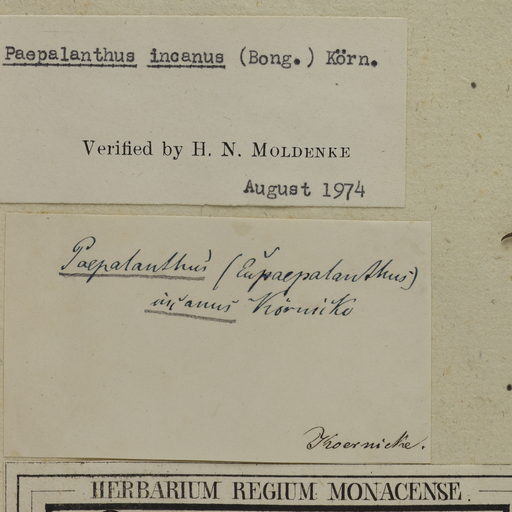 Paepalanthus incanus (Bong.) Körn.
Verified by H. N. MOLDENKE
August 1974
Paepalanthus (Eupaepalanthus)
incanus Körnicke
Koernicke.
HERBARIUM REGIUM MONACENSE.